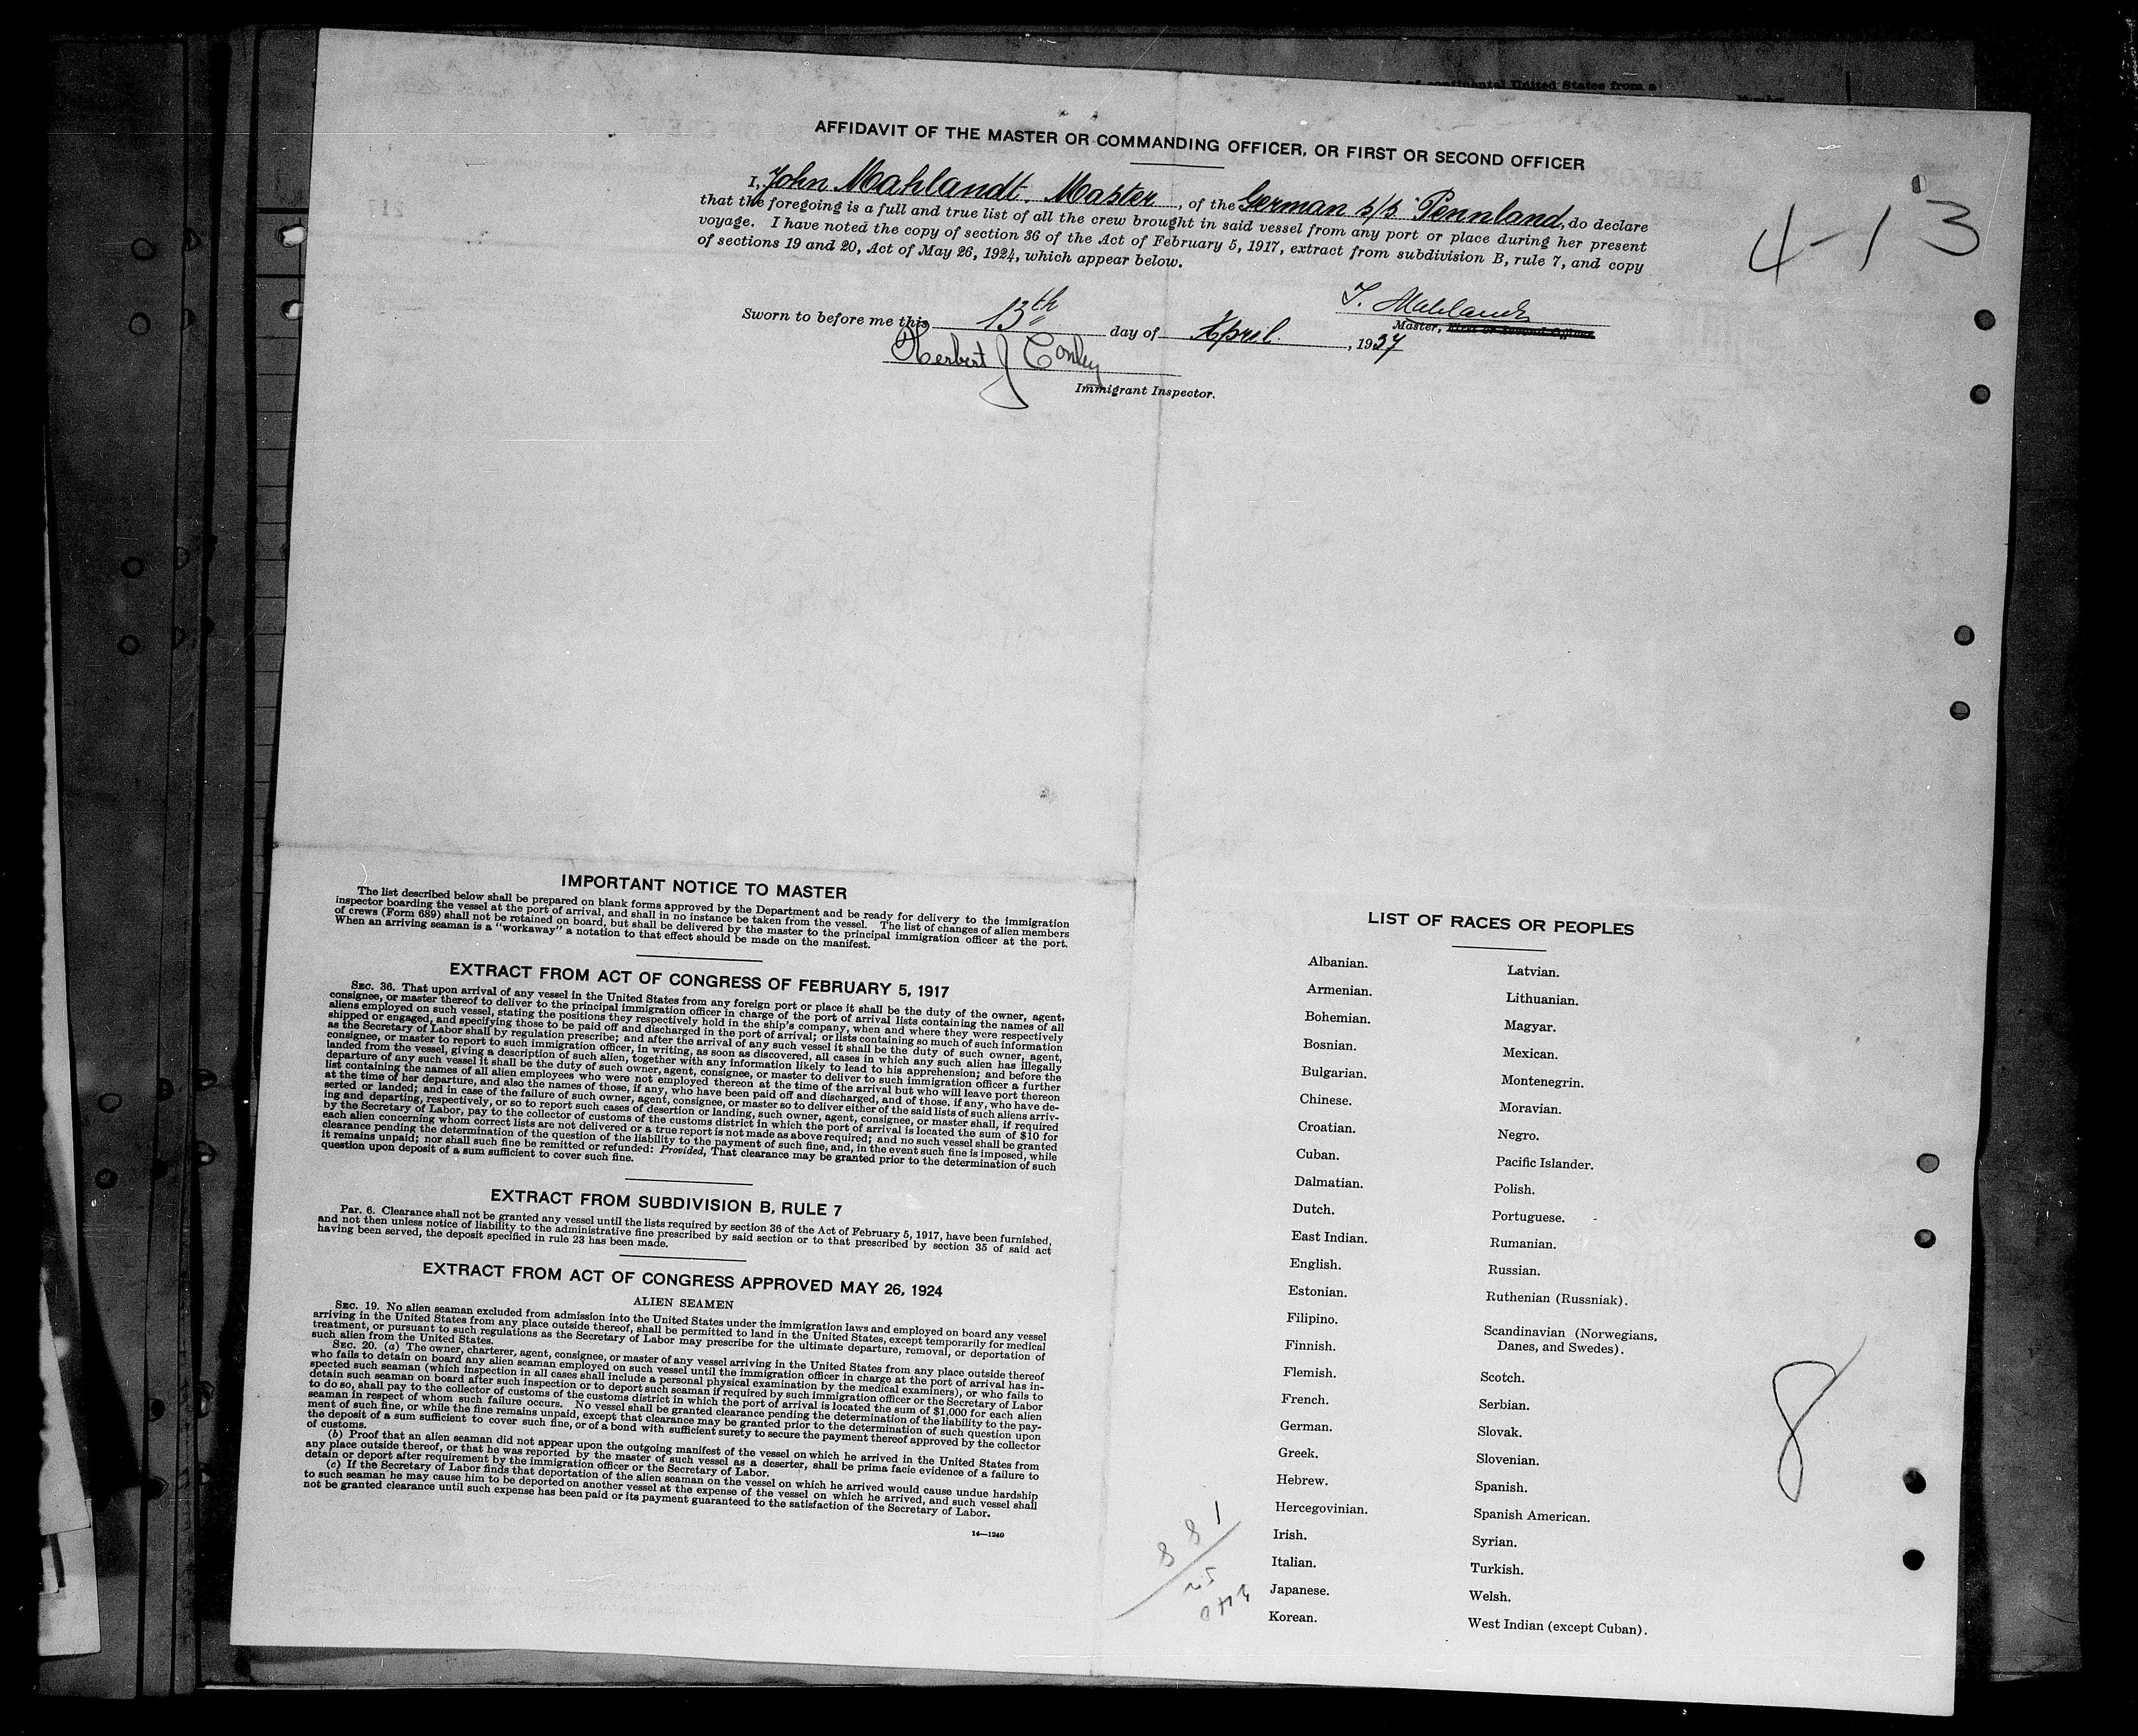 of continental United States from a
Number
AFFIDAVIT OF THE MASTER OR COMMANDING OFFICER, OR FIRST OR SECOND OFFICER
I, John Mahlandt, Master, of the German s/s "Pennland, do declare
that the foregoing is a full and true list of all the crew brought in said vessel from any port or place during her present
voyage. I have noted the copy of section 36 of the Act of February 5, 1917, extract from subdivision B, rule 7, and copy
of sections 19 and 20, Act of May 26, 1924, which appear below.
4-13
J. Mahlandt
Master, First or Second Officer
Sworn to before me this 13th day of April. , 1937
Herbert J Conley
Immigrant Inspector.
217
IMPORTANT NOTICE TO MASTER
The list described below shall be prepared on blank forms approved by the Department and be ready for delivery to the immigration
inspector boarding the vessel at the port of arrival, and shall in no instance be taken from the vessel. The list of changes of alien members
of crews (Form 689) shall not be retained on board, but shall be delivered by the master to the principal immigration officer at the port.
When an arriving seaman is a "workaway" a notation to that effect should be made on the manifest.
EXTRACT FROM ACT OF CONGRESS OF FEBRUARY 5, 1917
SEC. 36. That upon arrival of any vessel in the United States from any foreign port or place it shall be the duty of the owner, agent,
consignee, or master thereof to deliver to the principal immigration officer in charge of the port of arrival lists containing the names of all
aliens employed on such vessel, stating the positions they respectively hold in the ship's company, when and where they were respectively
shipped or engaged, and specifying those to be paid off and discharged in the port of arrival; or lists containing so much of such information
as the Secretary of Labor shall by regulation prescribe; and after the arrival of any such vessel it shall be the duty of such owner, agent,
consignee, or master to report to such immigration officer, in writing, as soon as discovered, all cases in which any such alien has illegally
landed from the vessel, giving a description of such alien, together with any information likely to lead to his apprehension; and before the
departure of any such vessel it shall be the duty of such owner, agent, consignee, or master to deliver to such immigration officer a further
list containing the names of all alien employees who were not employed thereon at the time of the arrival but who will leave port thereon
at the time of her departure, and also the names of those, if any, who have been paid off and discharged, and of those, if any, who have de-
serted or landed; and in case of the failure of such owner, agent, consignee, or master so to deliver either of the said lists of such aliens arriv-
ing and departing, respectively, or so to report such cases of desertion or landing, such owner, agent, consignee, or master shall, if required
by the Secretary of Labor, pay to the collector of customs of the customs district in which the port of arrival is located the sum of $10 for
each alien concerning whom correct lists are not delivered or a true report is not made as above required; and no such vessel shall be granted
clearance pending the determination of the question of the liability to the payment of such fine, and, in the event such fine is imposed, while
it remains unpaid; nor shall such fine be remitted or refunded: Provided, That clearance may be granted prior to the determination of such
question upon deposit of a sum sufficient to cover such fine.
EXTRACT FROM SUBDIVISION B, RULE 7
Par. 6. Clearance shall not be granted any vessel until the lists required by section 36 of the Act of February 5, 1917, have been furnished,
and not then unless notice of liability to the administrative fine prescribed by said section or to that prescribed by section 35 of said act
having been served, the deposit specified in rule 23 has been made.
EXTRACT FROM ACT OF CONGRESS APPROVED MAY 26, 1924
ALIEN SEAMEN
SEC. 19. No alien seaman excluded from admission into the United States under the immigration laws and employed on board any vessel
arriving in the United States from any place outside thereof, shall be permitted to land in the United States, except temporarily for medical
treatment, or pursuant to such regulations as the Secretary of Labor may prescribe for the ultimate departure, removal, or deportation of
such alien from the United States.
SEC. 20. (a) The owner, charterer, agent, consignee, or master of any vessel arriving in the United States from any place outside thereof
who fails to detain on board any alien seaman employed on such vessel until the immigration officer in charge at the port of arrival has in-
spected such seaman (which inspection in all cases shall include a personal physical examination by the medical examiners), or who fails to
detain such seaman on board after such inspection or to deport such seaman if required by such immigration officer or the Secretary of Labor
to do so, shall pay to the collector of customs of the customs district in which the port of arrival is located the sum of $1,000 for each alien
seaman in respect of whom such failure occurs. No vessel shall be granted clearance pending the determination of the liability to the pay-
ment of such fine, or while the fine remains unpaid, except that clearance may be granted prior to the determination of such question upon
the deposit of a sum sufficient to cover such fine, or of a bond with sufficient surety to secure the payment thereof approved by the collector
of customs.
(b) Proof that an alien seaman did not appear upon the outgoing manifest of the vessel on which he arrived in the United States from
any place outside thereof, or that he was reported by the master of such vessel as a deserter, shall be prima facie evidence of a failure to
detain or deport after requirement by the immigration officer or the Secretary of Labor.
(c) If the Secretary of Labor finds that deportation of the alien seaman on the vessel on which he arrived would cause undue hardship
to such seaman he may cause him to be deported on another vessel at the expense of the vessel on which he arrived, and such vessel shall
not be granted clearance until such expense has been paid or its payment guaranteed to the satisfaction of the Secretary of Labor.
14—1240
LIST OF RACES OR PEOPLES
Albanian.
Armenian.
Bohemian.
Bosnian.
Bulgarian.
Chinese.
Croatian.
Cuban.
Dalmatian.
Dutch.
East Indian.
English.
Estonian.
Filipino.
Finnish.
Flemish.
French.
German.
Greek.
Hebrew.
Hercegovinian.
Irish.
Italian.
Japanese.
Korean.
Latvian.
Lithuanian.
Magyar.
Mexican.
Montenegrin.
Moravian.
Negro.
Pacific Islander.
Polish.
Portuguese.
Rumanian.
Russian.
Ruthenian (Russniak).
Scandinavian (Norwegians,
Danes, and Swedes).
Scotch.
Serbian.
Slovak.
Slovenian.
Spanish.
Spanish American.
Syrian.
Turkish.
Welsh.
West Indian (except Cuban).
8